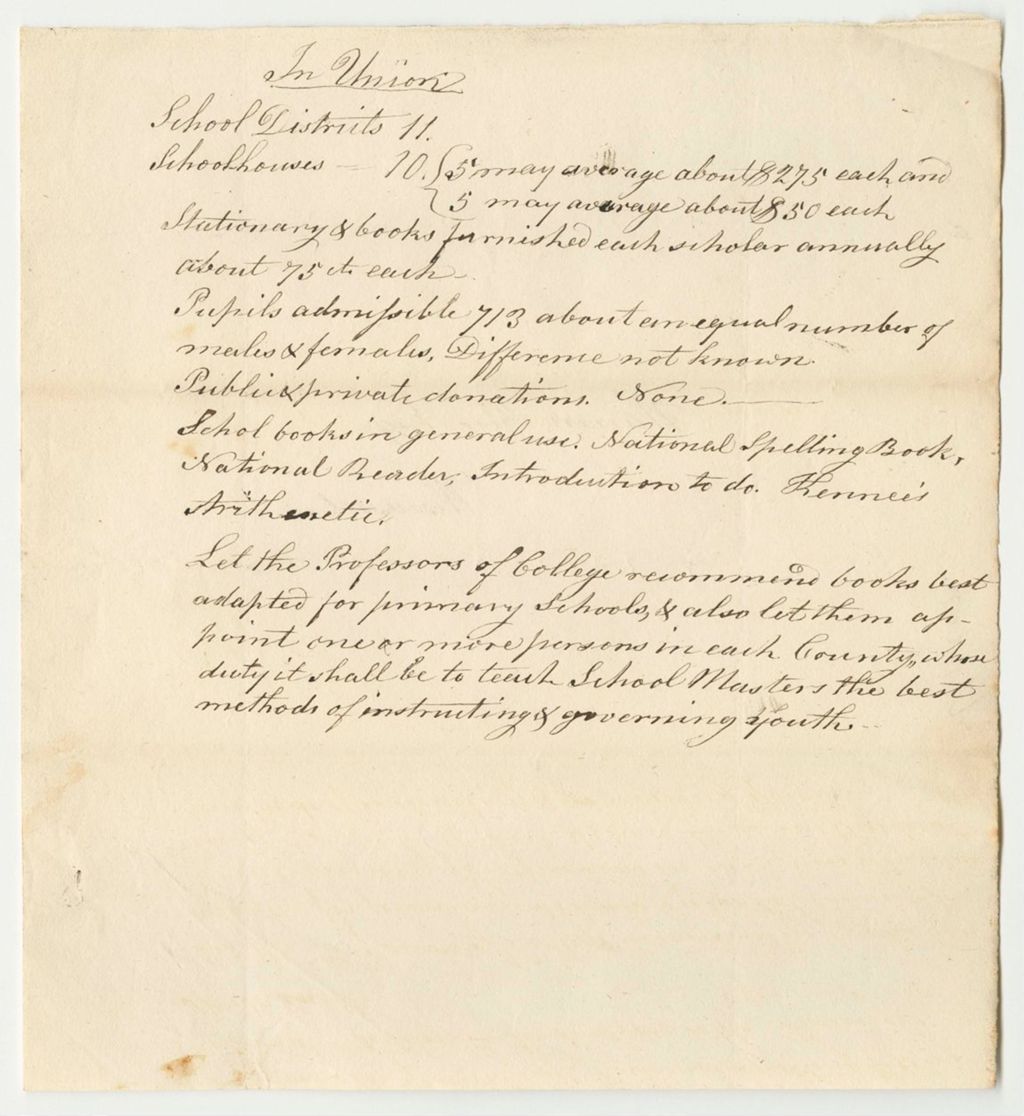 In Union
School Districts 11.
Schoolhouses — 10. { 5 may average about $275 each and
{ 5 may average about $50 each
Stationary & books furnished each scholar annually
about 75 cts each —
Pupils admissible 713 about an equal number of
males & females, Difference not known.
Public & private donations. None. —
Schol books in general use. National Spelling Book,
National Reader, Introduction to do. Kenne's
Arithmetic.
Let the Professors of College recommend books best
adapted for primary Schools, & also let them ap-
point one or more persons in each County, whose
duty it shall be to teach School Masters the best
methods of instructing & governing Youth. —